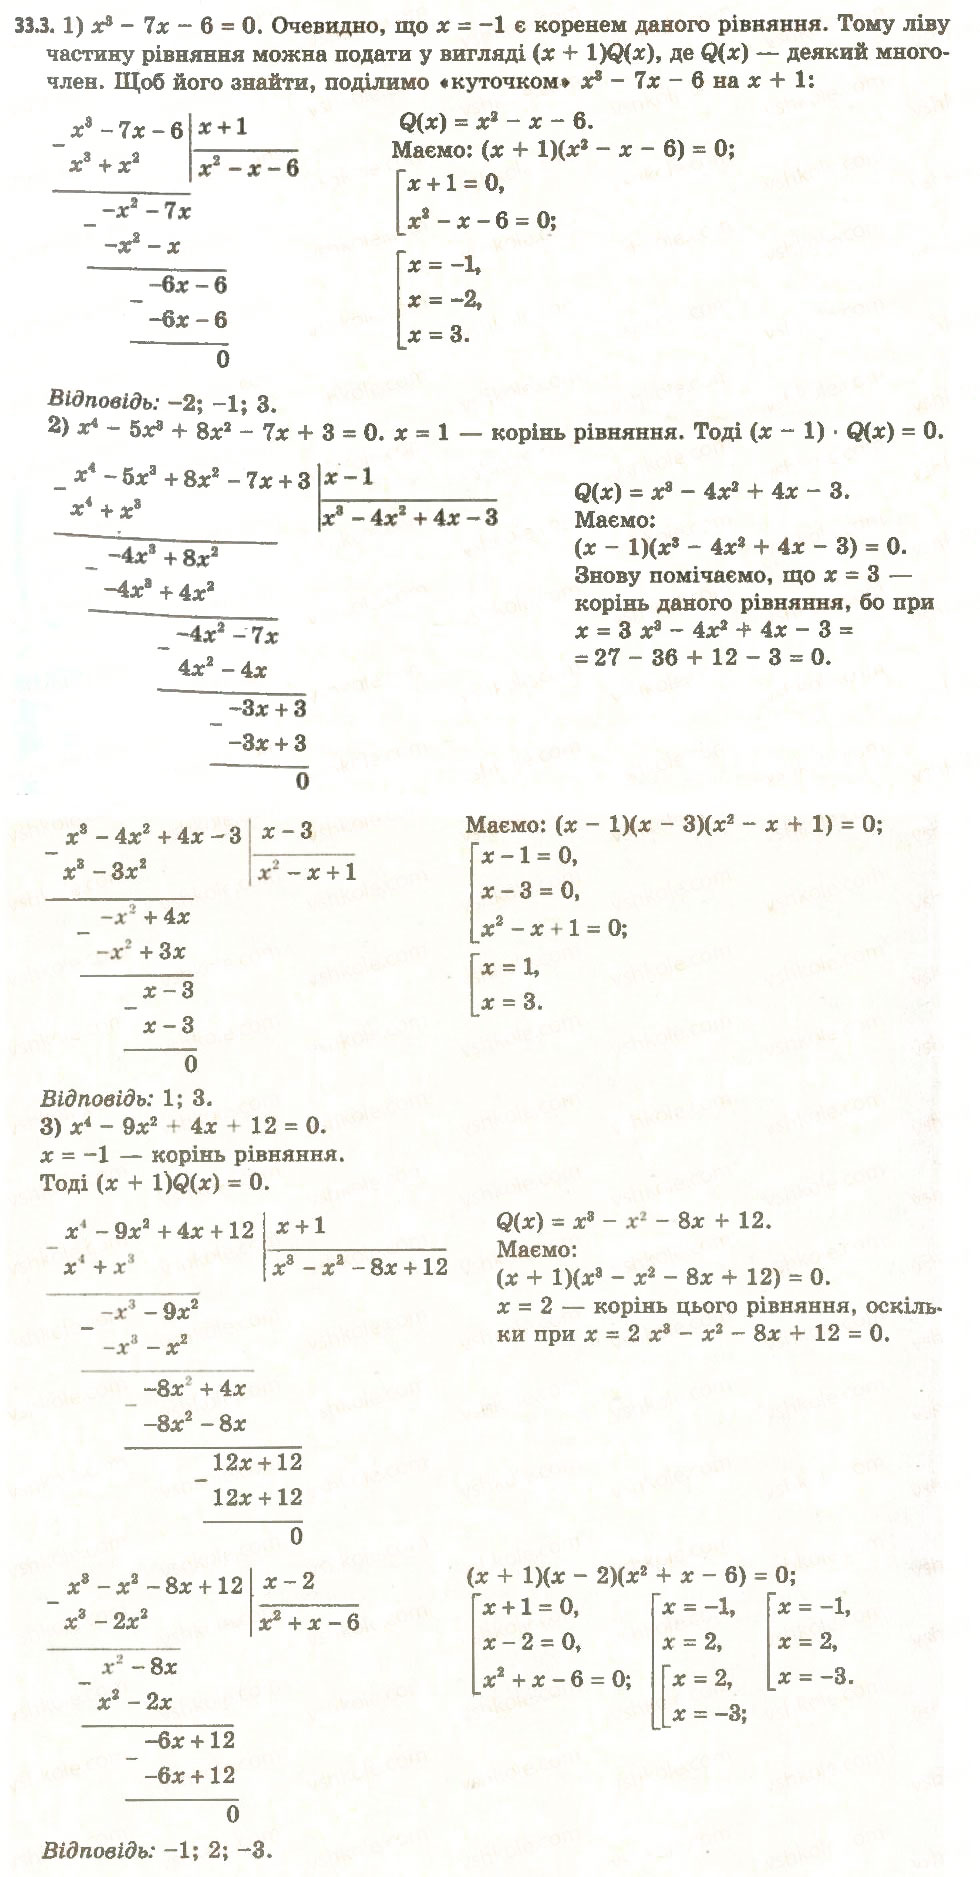 33.3. 1) x³ − 7x − 6 = 0. Очевидно, що x = −1 є коренем даного рівняння. Тому ліву
частину рівняння можна подати у вигляді (x + 1)Q(x), де Q(x) — деякий много-
член. Щоб його знайти, поділимо «куточком» x³ − 7x − 6 на x + 1:
− x³ − 7x − 6 | x + 1
x³ + x² | x² − x − 6
− −x² − 7x
−x² − x
− −6x − 6
−6x − 6
0
Q(x) = x² − x − 6.
Маємо: (x + 1)(x² − x − 6) = 0;
[ x + 1 = 0,
x² − x − 6 = 0;
[ x = −1,
x = −2,
x = 3.
Відповідь: −2; −1; 3.
2) x⁴ − 5x³ + 8x² − 7x + 3 = 0. x = 1 — корінь рівняння. Тоді (x − 1) · Q(x) = 0.
− x⁴ − 5x³ + 8x² − 7x + 3 | x − 1
x⁴ + x³ | x³ − 4x² + 4x − 3
− −4x³ + 8x²
−4x³ + 4x²
− −4x² − 7x
4x² − 4x
− −3x + 3
−3x + 3
0
Q(x) = x³ − 4x² + 4x − 3.
Маємо:
(x − 1)(x³ − 4x² + 4x − 3) = 0.
Знову помічаємо, що x = 3 —
корінь даного рівняння, бо при
x = 3 x³ − 4x² + 4x − 3 =
= 27 − 36 + 12 − 3 = 0.
− x³ − 4x² + 4x − 3 | x − 3
x³ − 3x² | x² − x + 1
− −x² + 4x
−x² + 3x
− x − 3
x − 3
0
Маємо: (x − 1)(x − 3)(x² − x + 1) = 0;
[ x − 1 = 0,
x − 3 = 0,
x² − x + 1 = 0;
[ x = 1,
x = 3.
Відповідь: 1; 3.
3) x⁴ − 9x² + 4x + 12 = 0.
x = −1 — корінь рівняння.
Тоді (x + 1)Q(x) = 0.
− x⁴ − 9x² + 4x + 12 | x + 1
x⁴ + x³ | x³ − x² − 8x + 12
− −x³ − 9x²
−x³ − x²
− −8x² + 4x
−8x² − 8x
− 12x + 12
12x + 12
0
Q(x) = x³ − x² − 8x + 12.
Маємо:
(x + 1)(x³ − x² − 8x + 12) = 0.
x = 2 — корінь цього рівняння, оскіль-
ки при x = 2 x³ − x² − 8x + 12 = 0.
− x³ − x² − 8x + 12 | x − 2
x³ − 2x² | x² + x − 6
− x² − 8x
x² − 2x
− −6x + 12
−6x + 12
0
(x + 1)(x − 2)(x² + x − 6) = 0;
[ x + 1 = 0, [ x = −1, [ x = −1,
x − 2 = 0, x = 2, x = 2,
x² + x − 6 = 0; [ x = 2, x = −3.
x = −3;
Відповідь: −1; 2; −3.